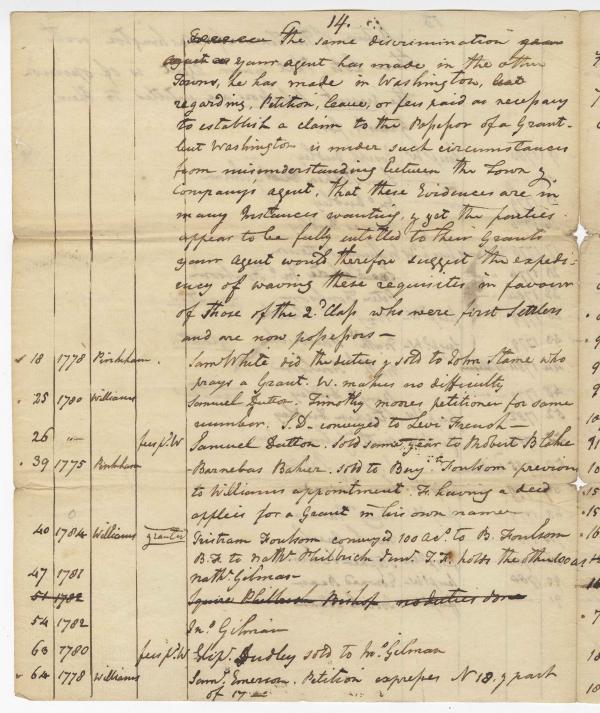 14.
The same discrimination
your agent has made in the other
Towns, he has made in Washington, but
regarding, Petition, leave, or fees paid as necessary
to establish a claim to the Possessor of a Grant-
but Washington is under such circumstances
from misunderstanding between the Town &
Company's agent, that these Evidences are in
many Instances wanting, & yet the parties
appear to be fully entitled to their Grants
your Agent would therefore suggest the expedi-
ency of waving these requisites in favour
of those of the 2d Class who were first Settlers
and are now possessors -
18 1778 Pinkham . Saml White did the duties & sold to John Stame who
prays a Grant. W. makes no difficulty
25 1780 Williams Samuel Dutton. Timothy moores petitioner for same
number. S.D. conveyed to Levi French -
26 " fees pd. W Samuel Dutton. Sold same year to Robert Blake
39 1775 Pinkham Barnebas Baker. sold to Benj. Foulsom previous
to Williams appointment. F. having a deed
applies for a Grant in his own name
40 1784 Williams granted Tristram Foulsom conveyed 100 acs. to B. Foulsom
B.F. to Nathl. Philbrick Junr. T.F. holds the other 100 as
47 1781 Nathl. Gilman
51 1782 Squire Philbrick Bishop no duties done
54 1782 Jno. Gilman
63 1780 fees pd. W Dudley sold to Jno. Gilman
64 1778 Williams Saml. Emerson. Petition expresses N 18. & part
of 17